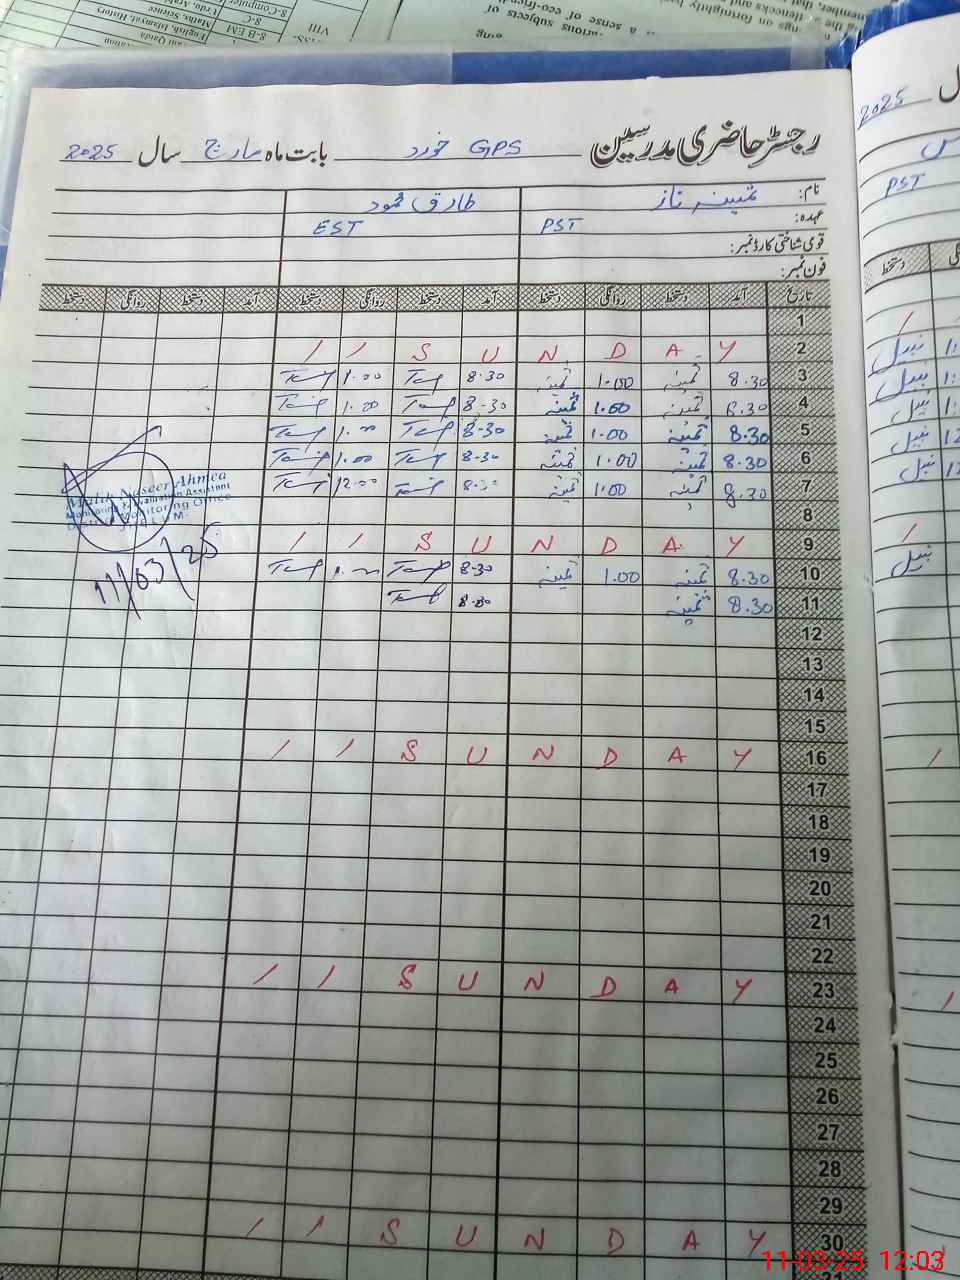 رجسٹر حاضری مدرسین GPS خورد بابت ماہ مارچ سال 2025
نام: ثمینہ ناز طارق محمود
عہدہ: PST EST
قومی شناختی کارڈ نمبر:
فون نمبر:
تاریخ آمد دستخط روانگی دستخط آمد دستخط روانگی دستخط آمد دستخط روانگی دستخط
1
2 Y A D N U S / /
3 8.30 ثمینہ 1.00 ثمینہ 8.30 1.00
4 8.30 ثمینہ 1.00 ثمینہ 8.30 1.00
5 8.30 ثمینہ 1.00 ثمینہ 8.30 1.00
6 8.30 ثمینہ 1.00 ثمینہ 8.30 1.00
7 8.30 ثمینہ 1:00 ثمینہ 8.30 12.00
8
9 Y A D N U S / /
10 8.30 ثمینہ 1.00 ثمینہ 8.30
11 8.30 ثمینہ 8.30
12
13
14
15
16 Y A D N U S / /
17
18
19
20
21
22
23 Y A D N U S / /
24
25
26
27
28
29
30 Y A D N U S / /
Malik Naseer Ahmed
Monitoring & Evaluation Assistant
District Monitoring Office
11/03/25
2025
PST
دستخط
نبیل
نبیل
نبیل
نبیل
نبیل
نبیل
VIII
8-B EM
8-C
English, Islamyat, History
Maths, Science
11-03-25 12:03